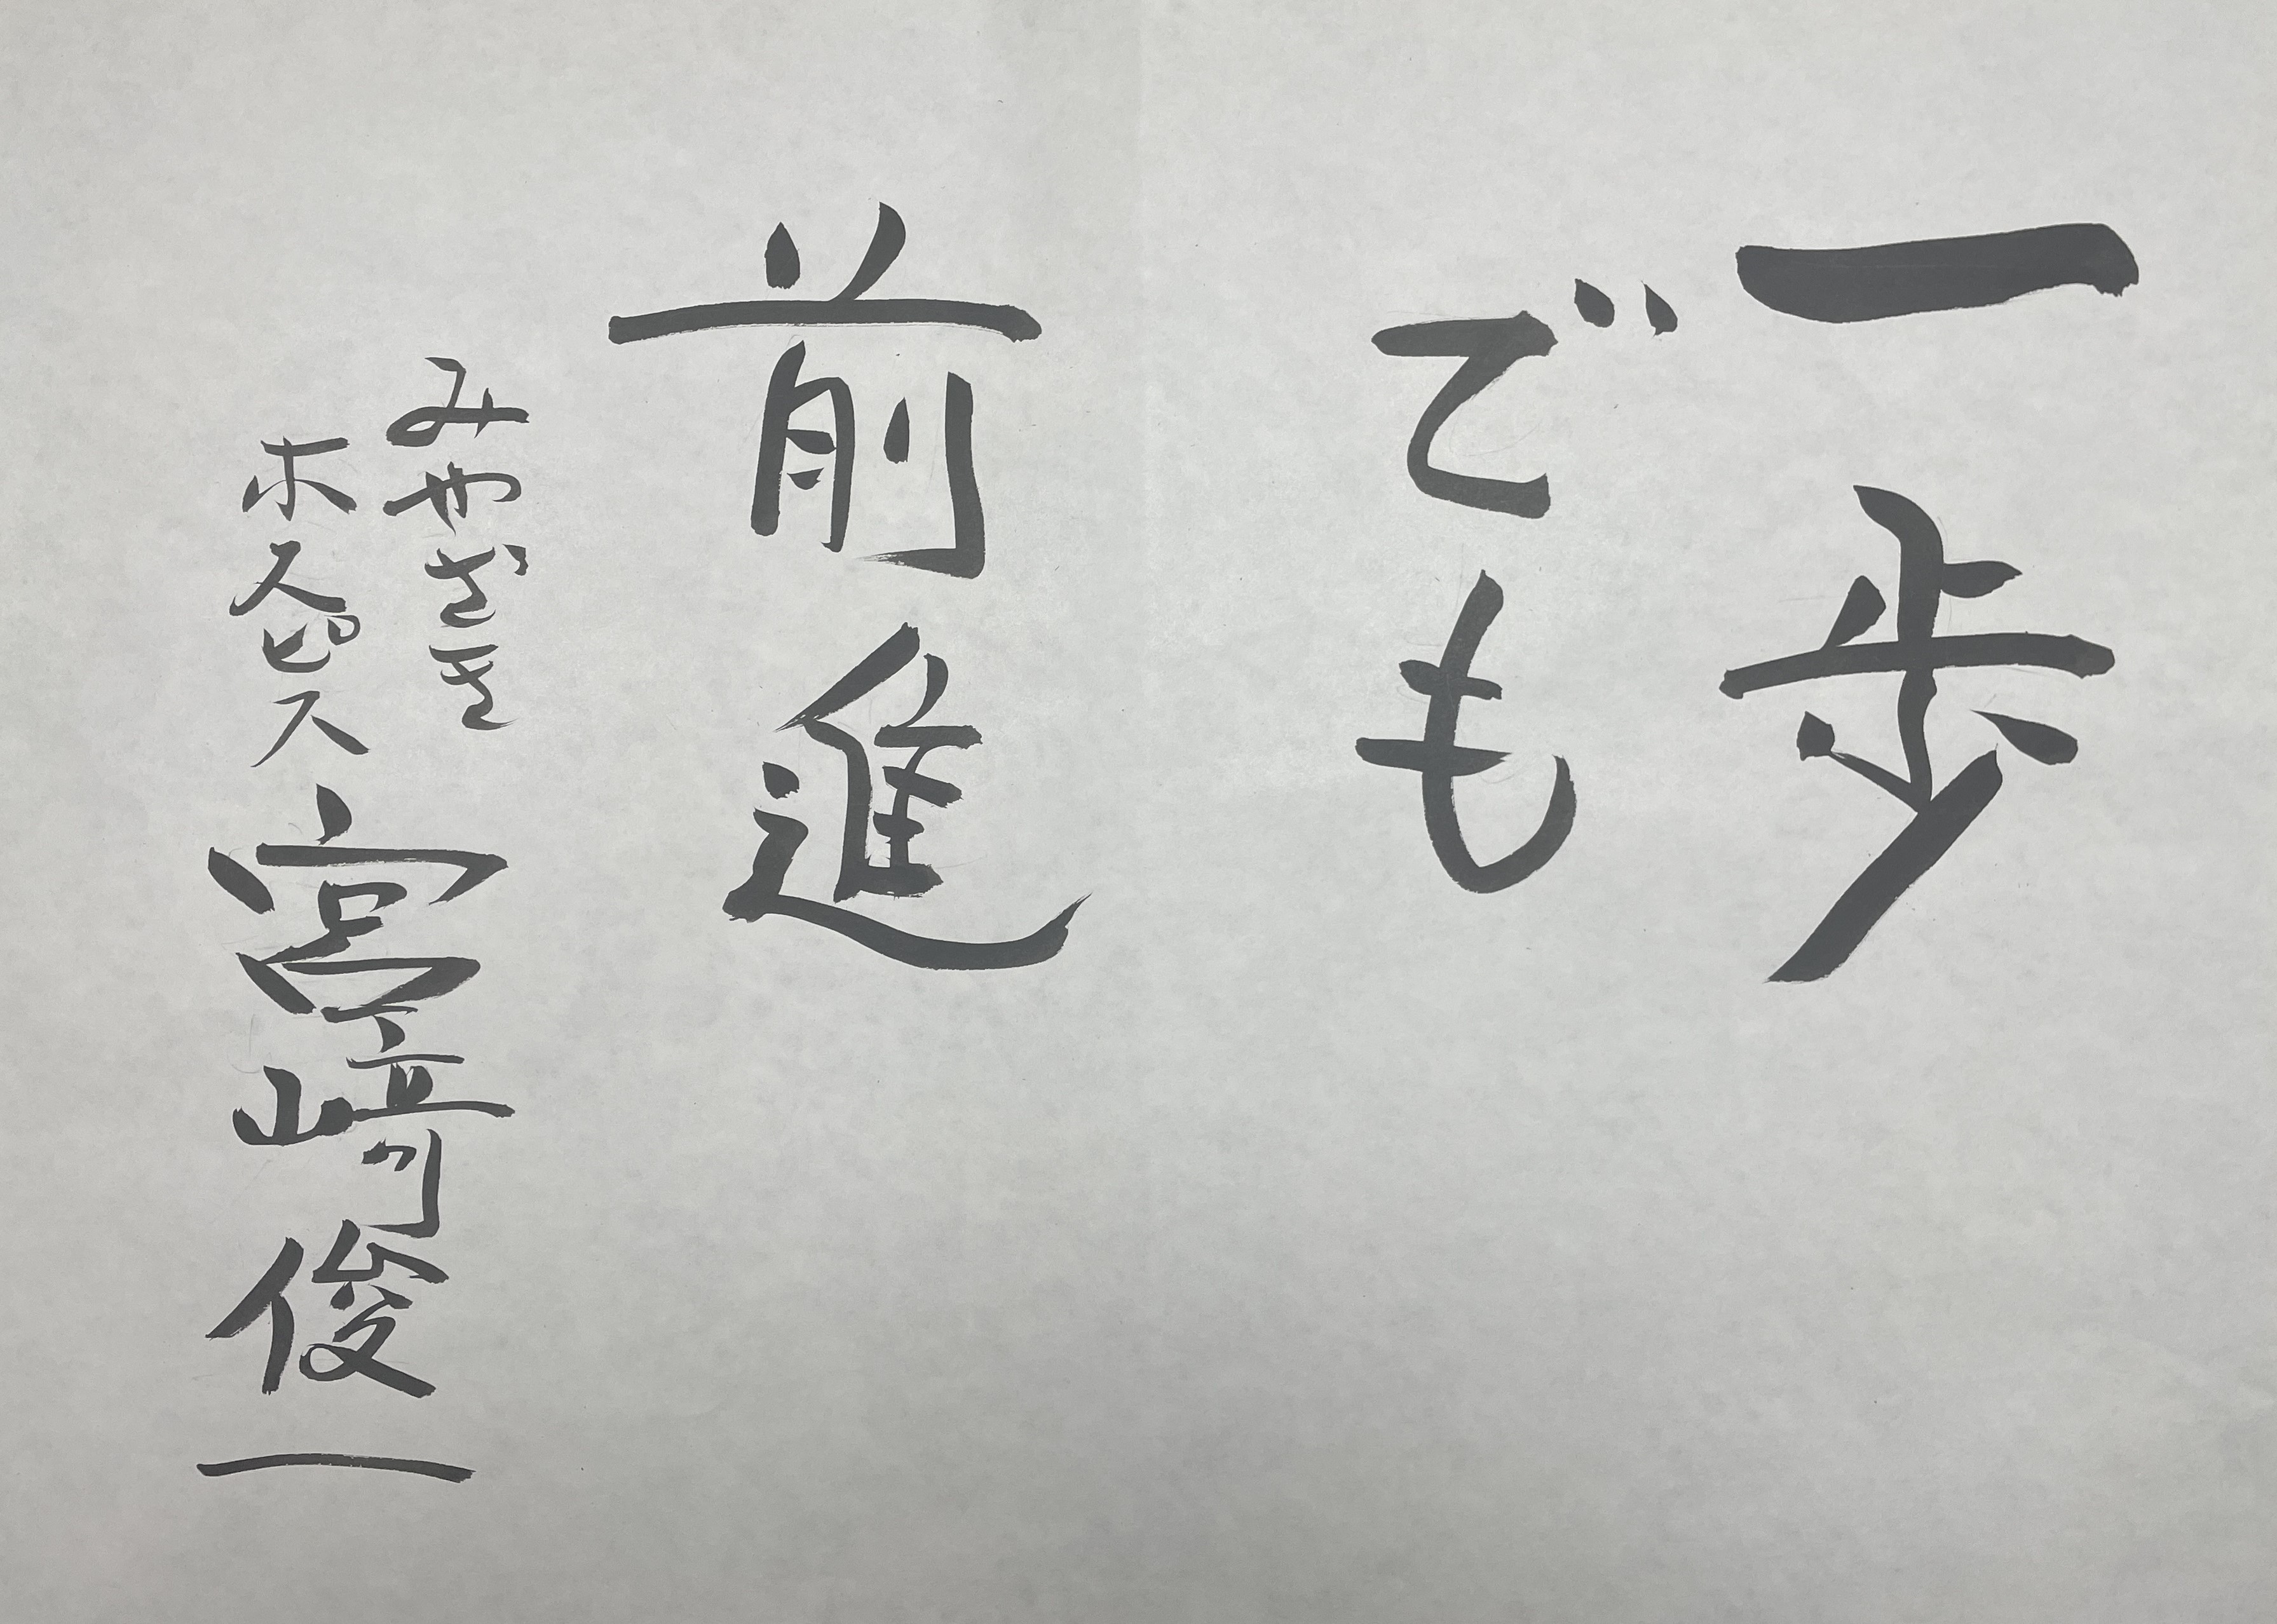 一歩
でも
前進
みやざき
ホスピス
宮﨑俊一